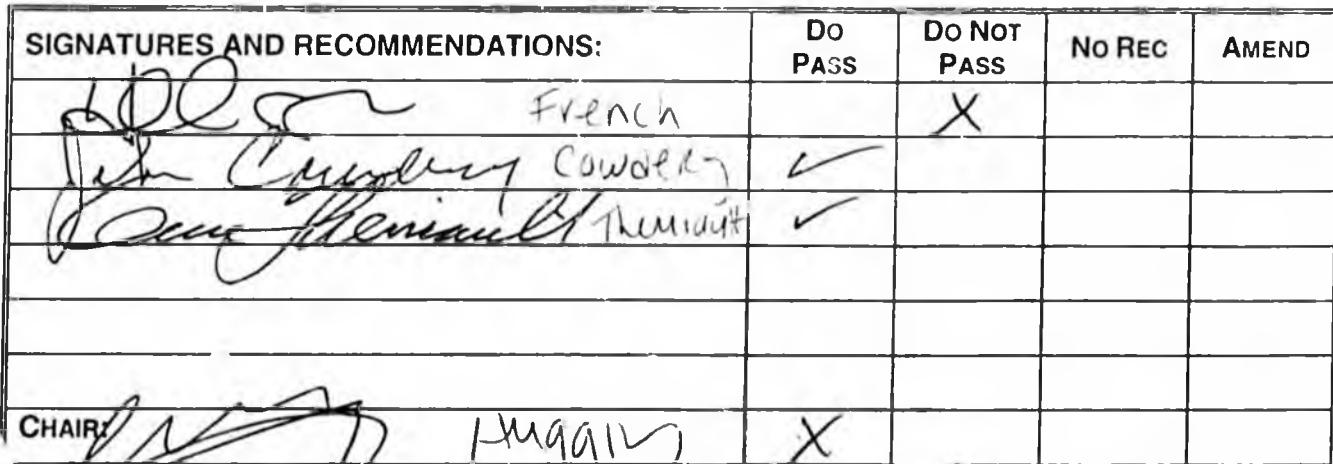 SIGNATURES AND RECOMMENDATIONS: DO PASS DO NOT PASS NO REC AMEND
French X
John Cowdery Cowdery ✓
Gene Therriault Therriault ✓
CHAIR: Huggins X